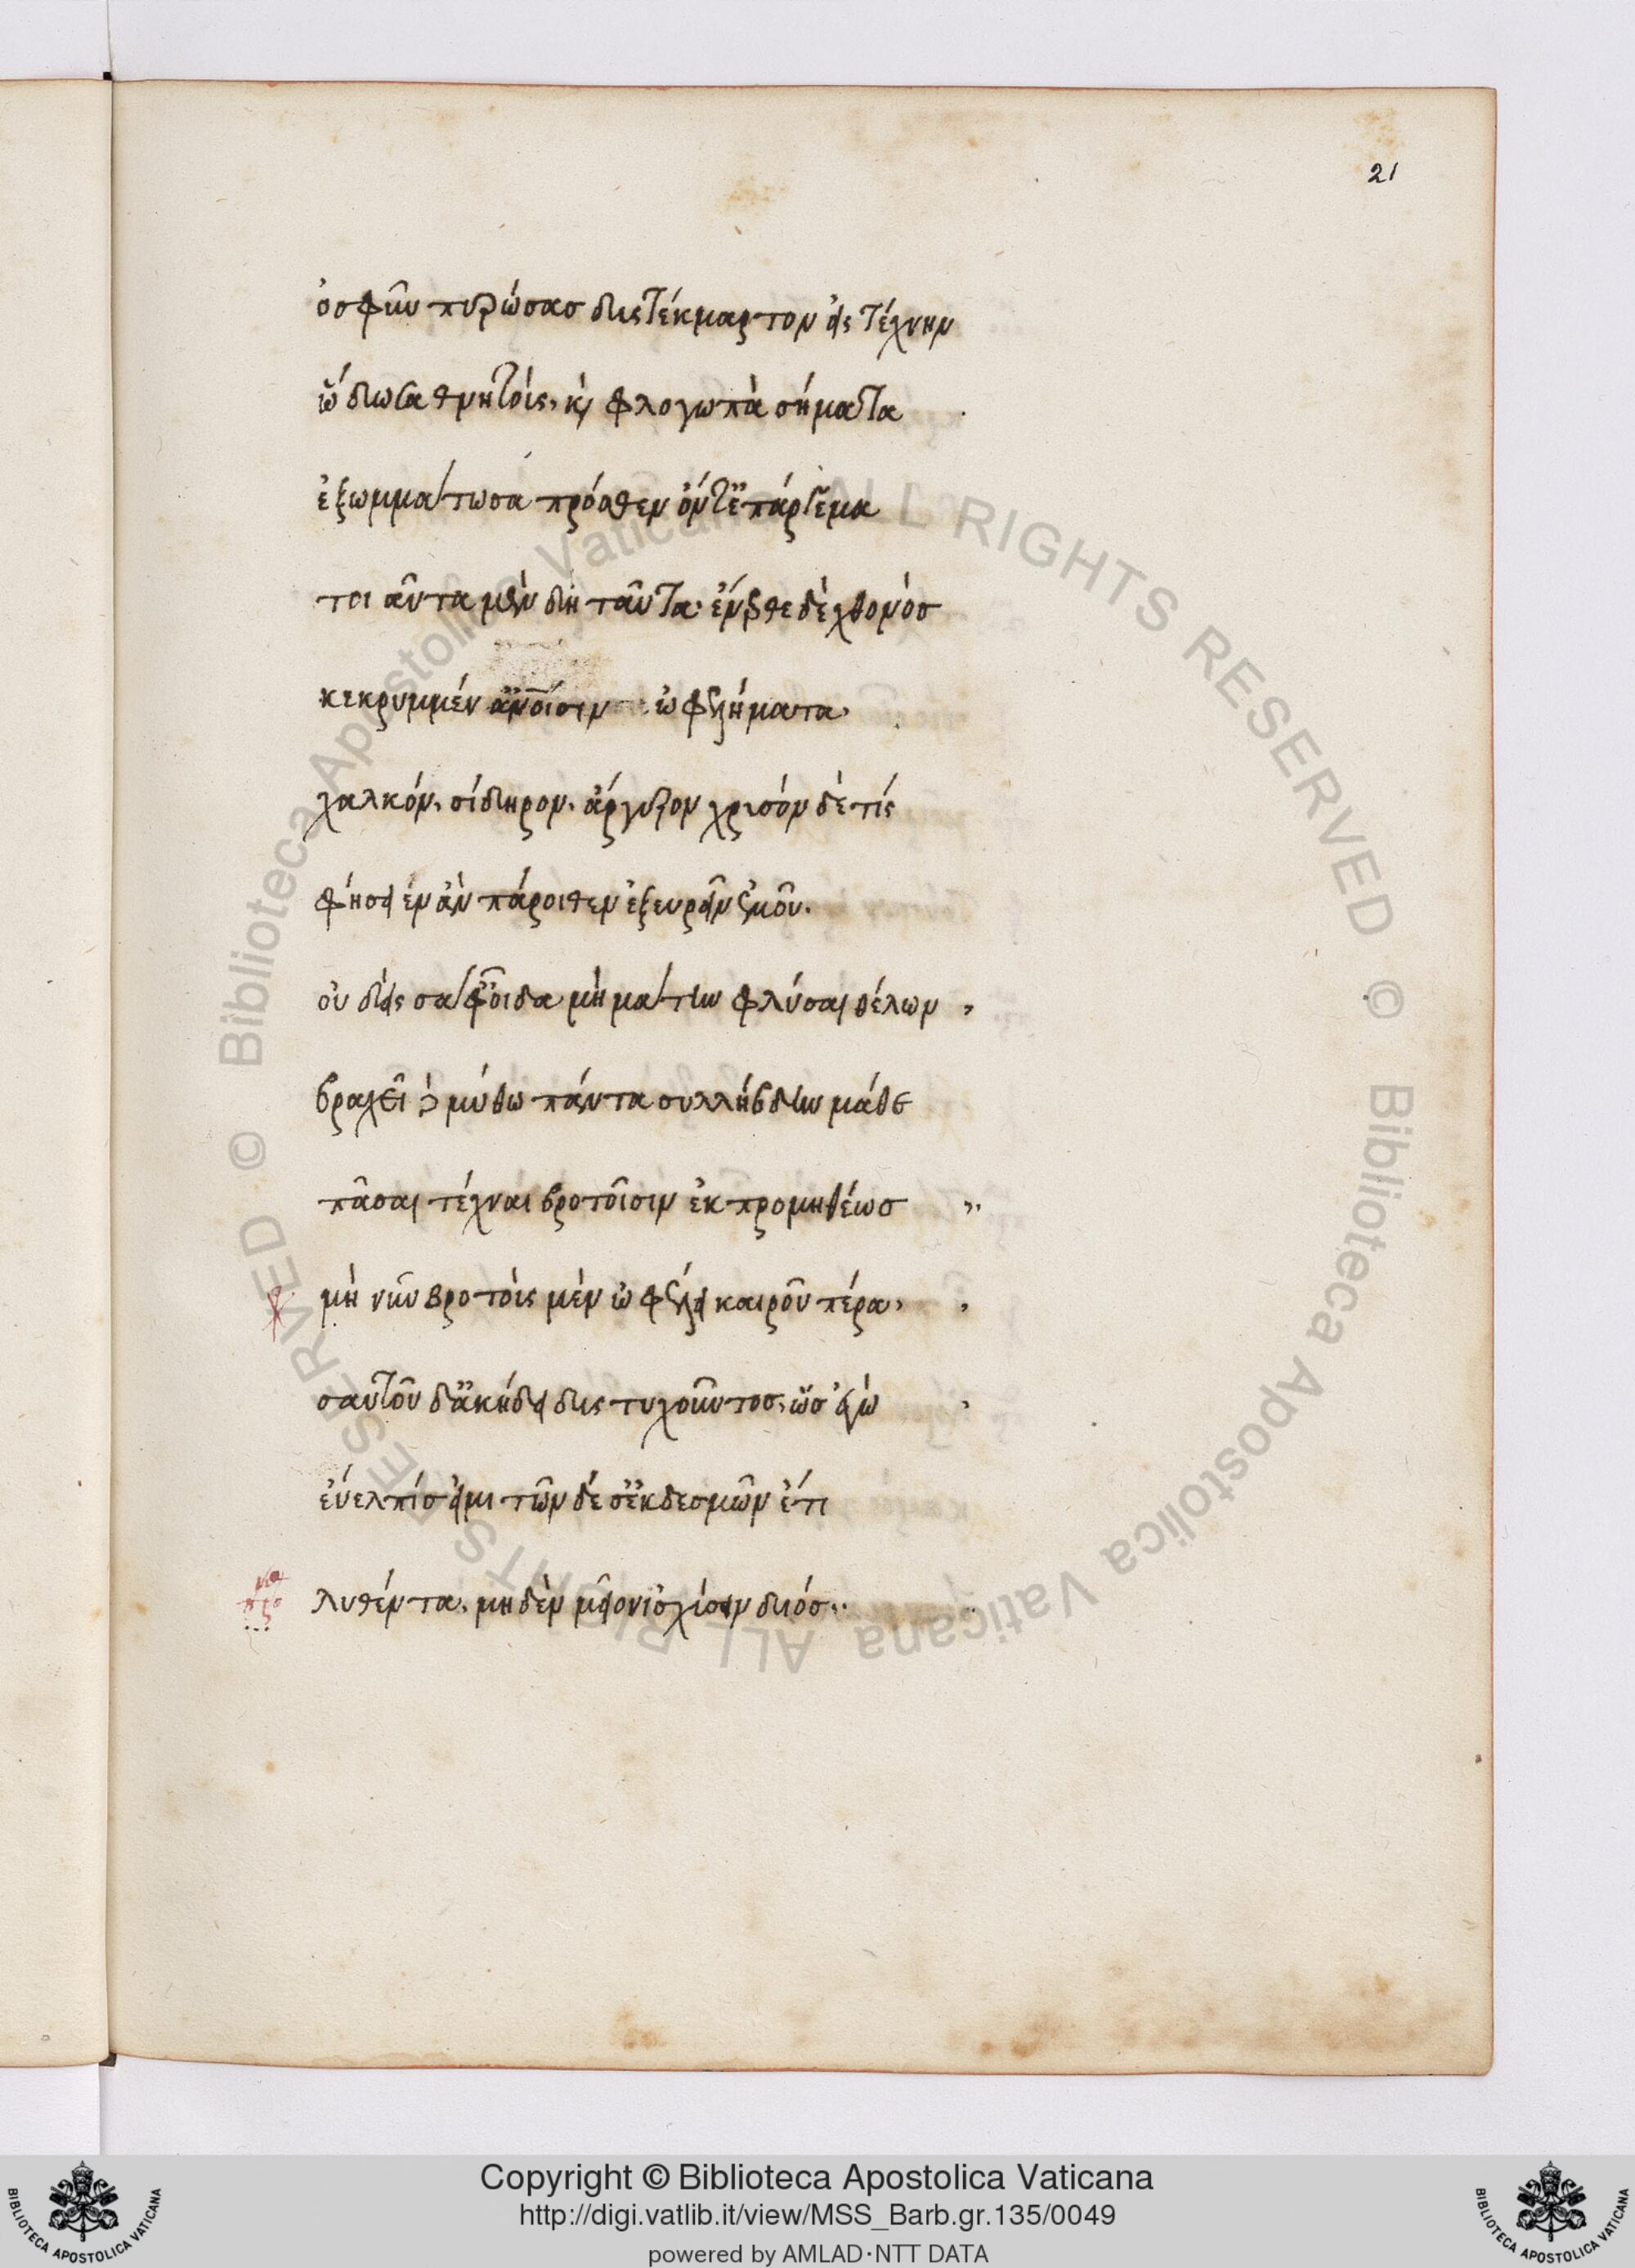 21
ὀσφῦν πυρώσας δυστέκμαρτον εἰς τέχνην
ὥδωσα θνητοῖς, καὶ φλογωπὰ σήματα
ἐξωμμάτωσα πρόσθεν ὄντ' ἐπάργεμα
τοιαῦτα μὲν δὴ ταῦτα· ἔνερθε δὲ χθονὸς
κεκρυμμέν' ἀν̅ο̅ίσιν ὠφελήματα,
χαλκόν, σίδηρον, ἄργυρον χρυσόν δὲ τίς
φήσειεν ἂν πάροιθεν ἐξευρεῖν ἐμοῦ.
οὐδεὶς σάφ' οἶδα μὴ μάτην φλύσαι θέλων,
βραχεῖ δὲ μύθω πάντα συλλήβδην μάθε
πᾶσαι τέχναι βροτοῖσιν ἐκ προμηθέως
μὴ νῦν βροτοὺς μὲν ὠφέλει καιροῦ πέρα,
σαυτοῦ δ' ἀκήδει δυστυχοῦντος, ὡς ἐγὼ
εὔελπίς εἰμι τῶν δέ σ' ἐκ δεσμῶν ἔτι
προ λυθέντα, μηδὲν μεῖον ἰσχύσειν διός
Copyright © Biblioteca Apostolica Vaticana
http://digi.vatlib.it/view/MSS_Barb.gr.135/0049
powered by AMLAD·NTT DATA
BIBLIOTECA APOSTOLICA VATICANA
BIBLIOTECA APOSTOLICA VATICANA
© Biblioteca Apostolica Vaticana ALL RIGHTS RESERVED © Biblioteca Apostolica Vaticana ALL RIGHTS RESERVED